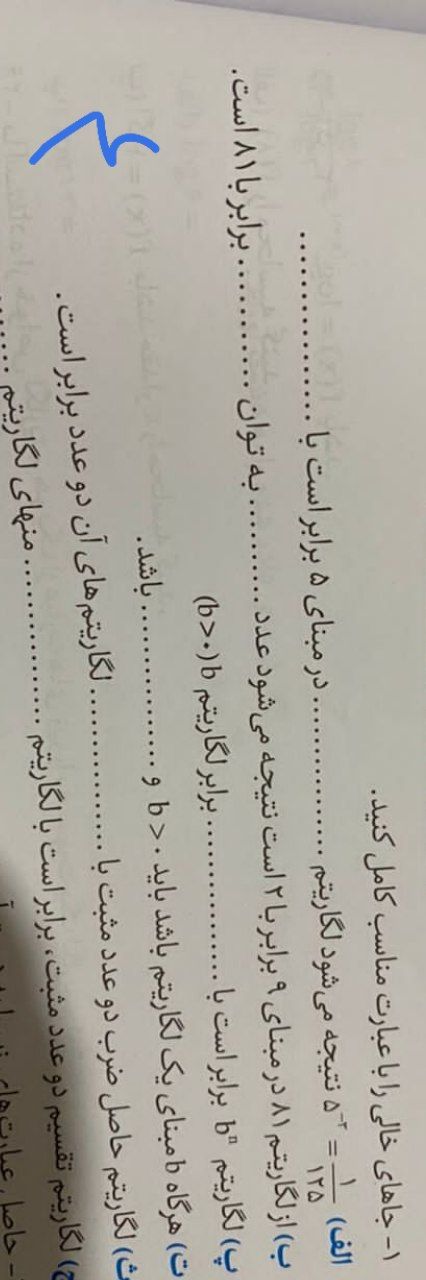 ۱- جاهای خالی را با عبارت مناسب کامل کنید.
الف) ۵⁻³ = ۱/۱۲۵ نتیجه می‌شود لگاریتم ............... در مبنای ۵ برابر است با ...............
ب) از لگاریتم ۸۱ در مبنای ۹ برابر با ۲ است نتیجه می‌شود عدد .......... به توان .......... برابر با ۸۱ است.
پ) لگاریتم bⁿ برابر است با ............... برابر لگاریتم b (b>۰)
ت) هرگاه b مبنای یک لگاریتم باشد باید b>۰ و ............... باشد.
ث) لگاریتم حاصل ضرب دو عدد مثبت با ............... لگاریتم‌های آن دو عدد برابر است.
ج) لگاریتم تقسیم دو عدد مثبت، برابر است با لگاریتم ............... منهای لگاریتم ........
- حاصل عبارت‌های